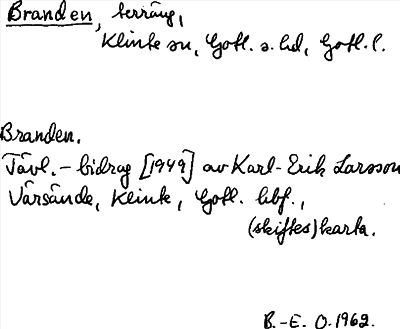 Branden, terräng,
Klinte sn, Gotl. s. hd, Gotl. l.
Branden.
Tävl.-bidrag [1949] av Karl-Erik Larsson
Värsände, Klinte, Gotl. hbf.,
(skiftes)karta.
B.-E. O. 1962.